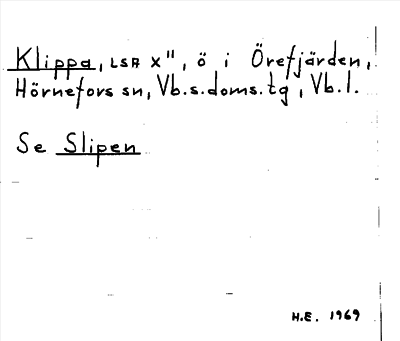 Klippa, LSA X", ö i Örefjärden,
Hörnefors sn, Vb.s.doms.tg, Vb.l.
Se Slipen
H.E. 1969